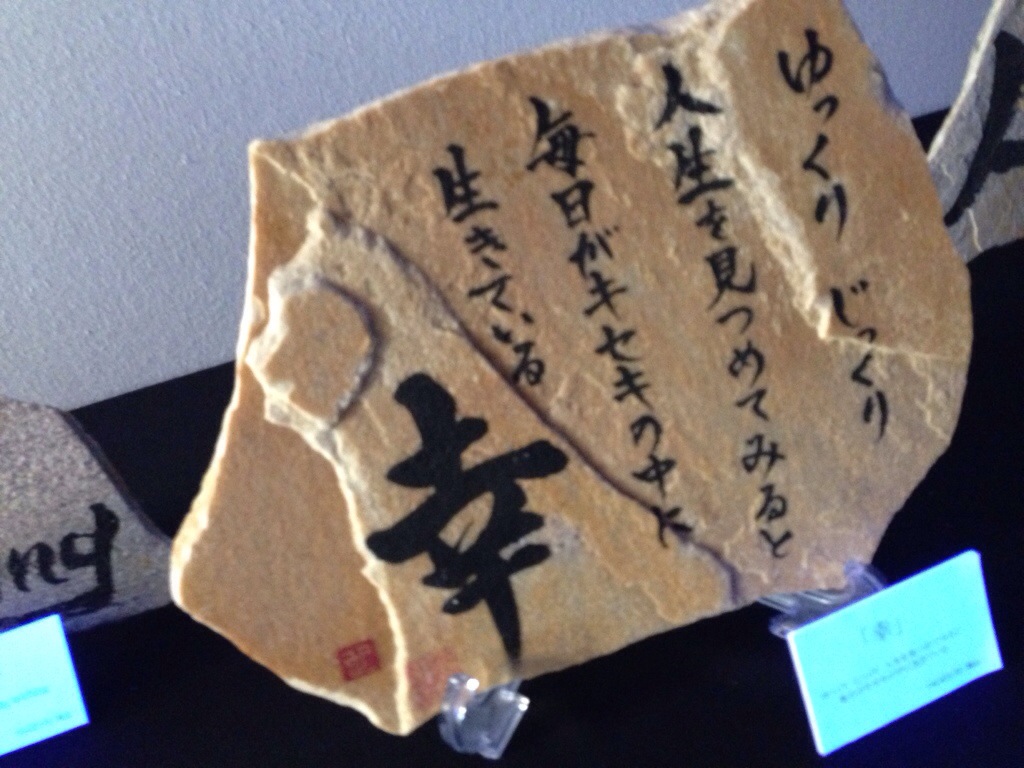 ゆっくり じっくり
人生を見つめてみると
毎日がキセキの中に
生きている
幸
「幸」
ng